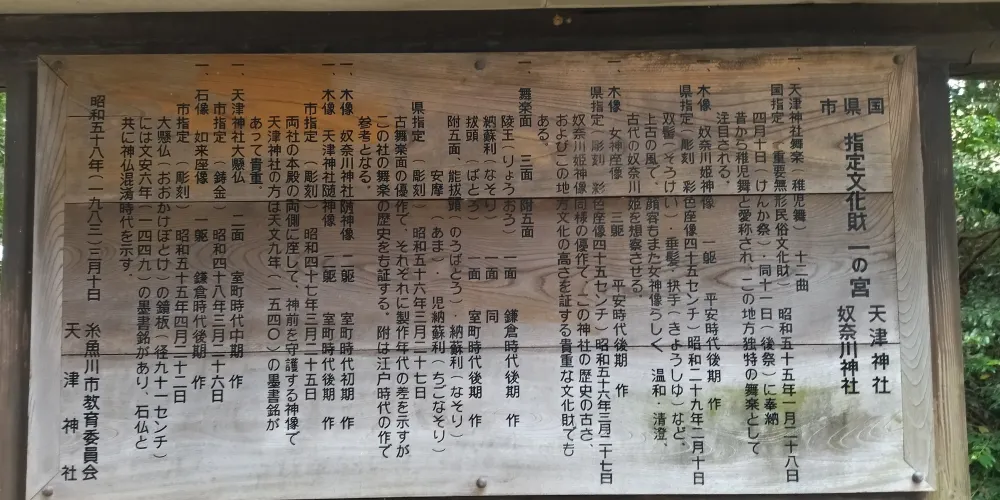 国
県　指定文化財　一の宮　天津神社
市　　　　　　　　　　　奴奈川神社
一、天津神社舞楽（稚児舞）　十二曲
国指定（重要無形民俗文化財）　昭和五十五年一月二十八日
四月十日（けんか祭）・同十一日（後祭）に奉納
昔から稚児舞と愛称され、この地方独特の舞楽として
注目される。
一、木像　奴奈川姫神像　一躯　平安時代後期　作
県指定（彫刻）彩色座像四十五センチ）昭和二十九年二月十日
双髻（そうけい）・垂髪・拱手（きょうしゅ）など、
上古の風で、顔容もまた女神像らしく、温和・清澄、
古代の奴奈川姫を想察させる。
一、木像　女神座像　三躯　平安時代後期　作
県指定（彫刻　彩色座像四十五センチ）昭和五十六年三月二十七日
奴奈川姫神像同様の優作で、この神社の歴史の古さ、
およびこの地方文化の高さを証する貴重な文化財でも
ある。
一、舞楽面　三面　附五面
陵王（りょうおう）　一面　鎌倉時代後期　作
納蘇利（なそり）　一面　同
抜頭（ばとう）　一面　室町時代後期　作
附五面、能抜頭（のうばとう）・納蘇利（なそり）
安摩（あま）・児納蘇利（ちごなそり）
県指定（彫刻）　昭和五十六年三月二十七日
古舞楽面の優作で、それぞれに製作年代の差を示すが
この社の舞楽の歴史をも証する。附は江戸時代の作で
参考となる。
一、木像　奴奈川神社随神像　二躯　室町時代初期　作
一、木像　天津神社随神像　二躯　室町時代後期　作
市指定（彫刻）　昭和四十七年三月二十五日
両社の本殿の両側に座して、神前を守護する神像で
天津神社の方は天文九年（一五四〇）の墨書銘が
あって貴重。
一、天津神社大懸仏　二面　室町時代中期　作
市指定（鋳金）　昭和四十八年三月二十六日
一、石像　如来座像　一躯　鎌倉時代後期　作
市指定（彫刻）　昭和五十五年四月二十二日
大懸仏（おおかけぼとけ）の鏡板（径九十一センチ）
には文安六年（一四四九）の墨書銘があり、石仏と
共に神仏混淆時代を示す。
昭和五十八年（一九八三）三月十日　糸魚川市教育委員会
天津神社